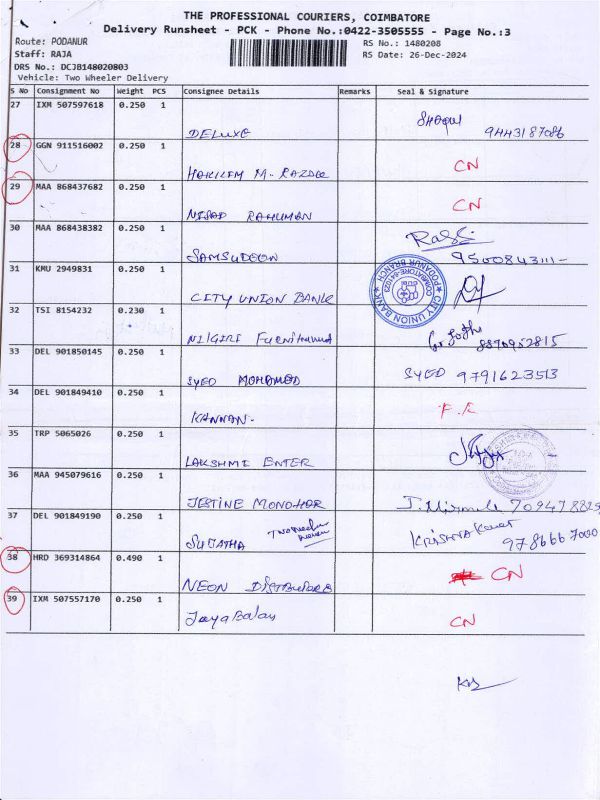 THE PROFESSIONAL COURIERS, COIMBATORE
Delivery Runsheet - PCK - Phone No.:0422-3505555 - Page No.:3
Route: PODANUR
RS No.: 1480208
Staff: RAJA
RS Date: 26-Dec-2024
DRS No.: DCJB148020803
Vehicle: Two Wheeler Delivery
S No Consignment No Weight PCS Consignee Details Remarks Seal & Signature
27 IXM 507597618 0.250 1
DELUXE 9443187086
28 GGN 911516002 0.250 1
HAKILEM M. RAZDEE CN
29 MAA 868437682 0.250 1
NISAD RAHUMAN CN
30 MAA 868438382 0.250 1
SAMSUDEEN 9500843111-
31 KMU 2949831 0.250 1
CITY UNION BANK
CITY UNION BANK PODANUR BRANCH COIMBATORE-641023
32 TSI 8154232 0.230 1
NILGIRI Furniture 8870952815
33 DEL 901850145 0.250 1
SYED MOHAMED SYED 9791623513
34 DEL 901849410 0.250 1
KANNAN.
35 TRP 5065026 0.250 1
LAKSHMI ENTER
36 MAA 945079616 0.250 1
JESTINE MONOHAR
37 DEL 901849190 0.250 1
SUJATHA
38 HRD 369314864 0.490 1
NEON DISTBUTORS CN
39 IXM 507557170 0.250 1
JayaBalan CN